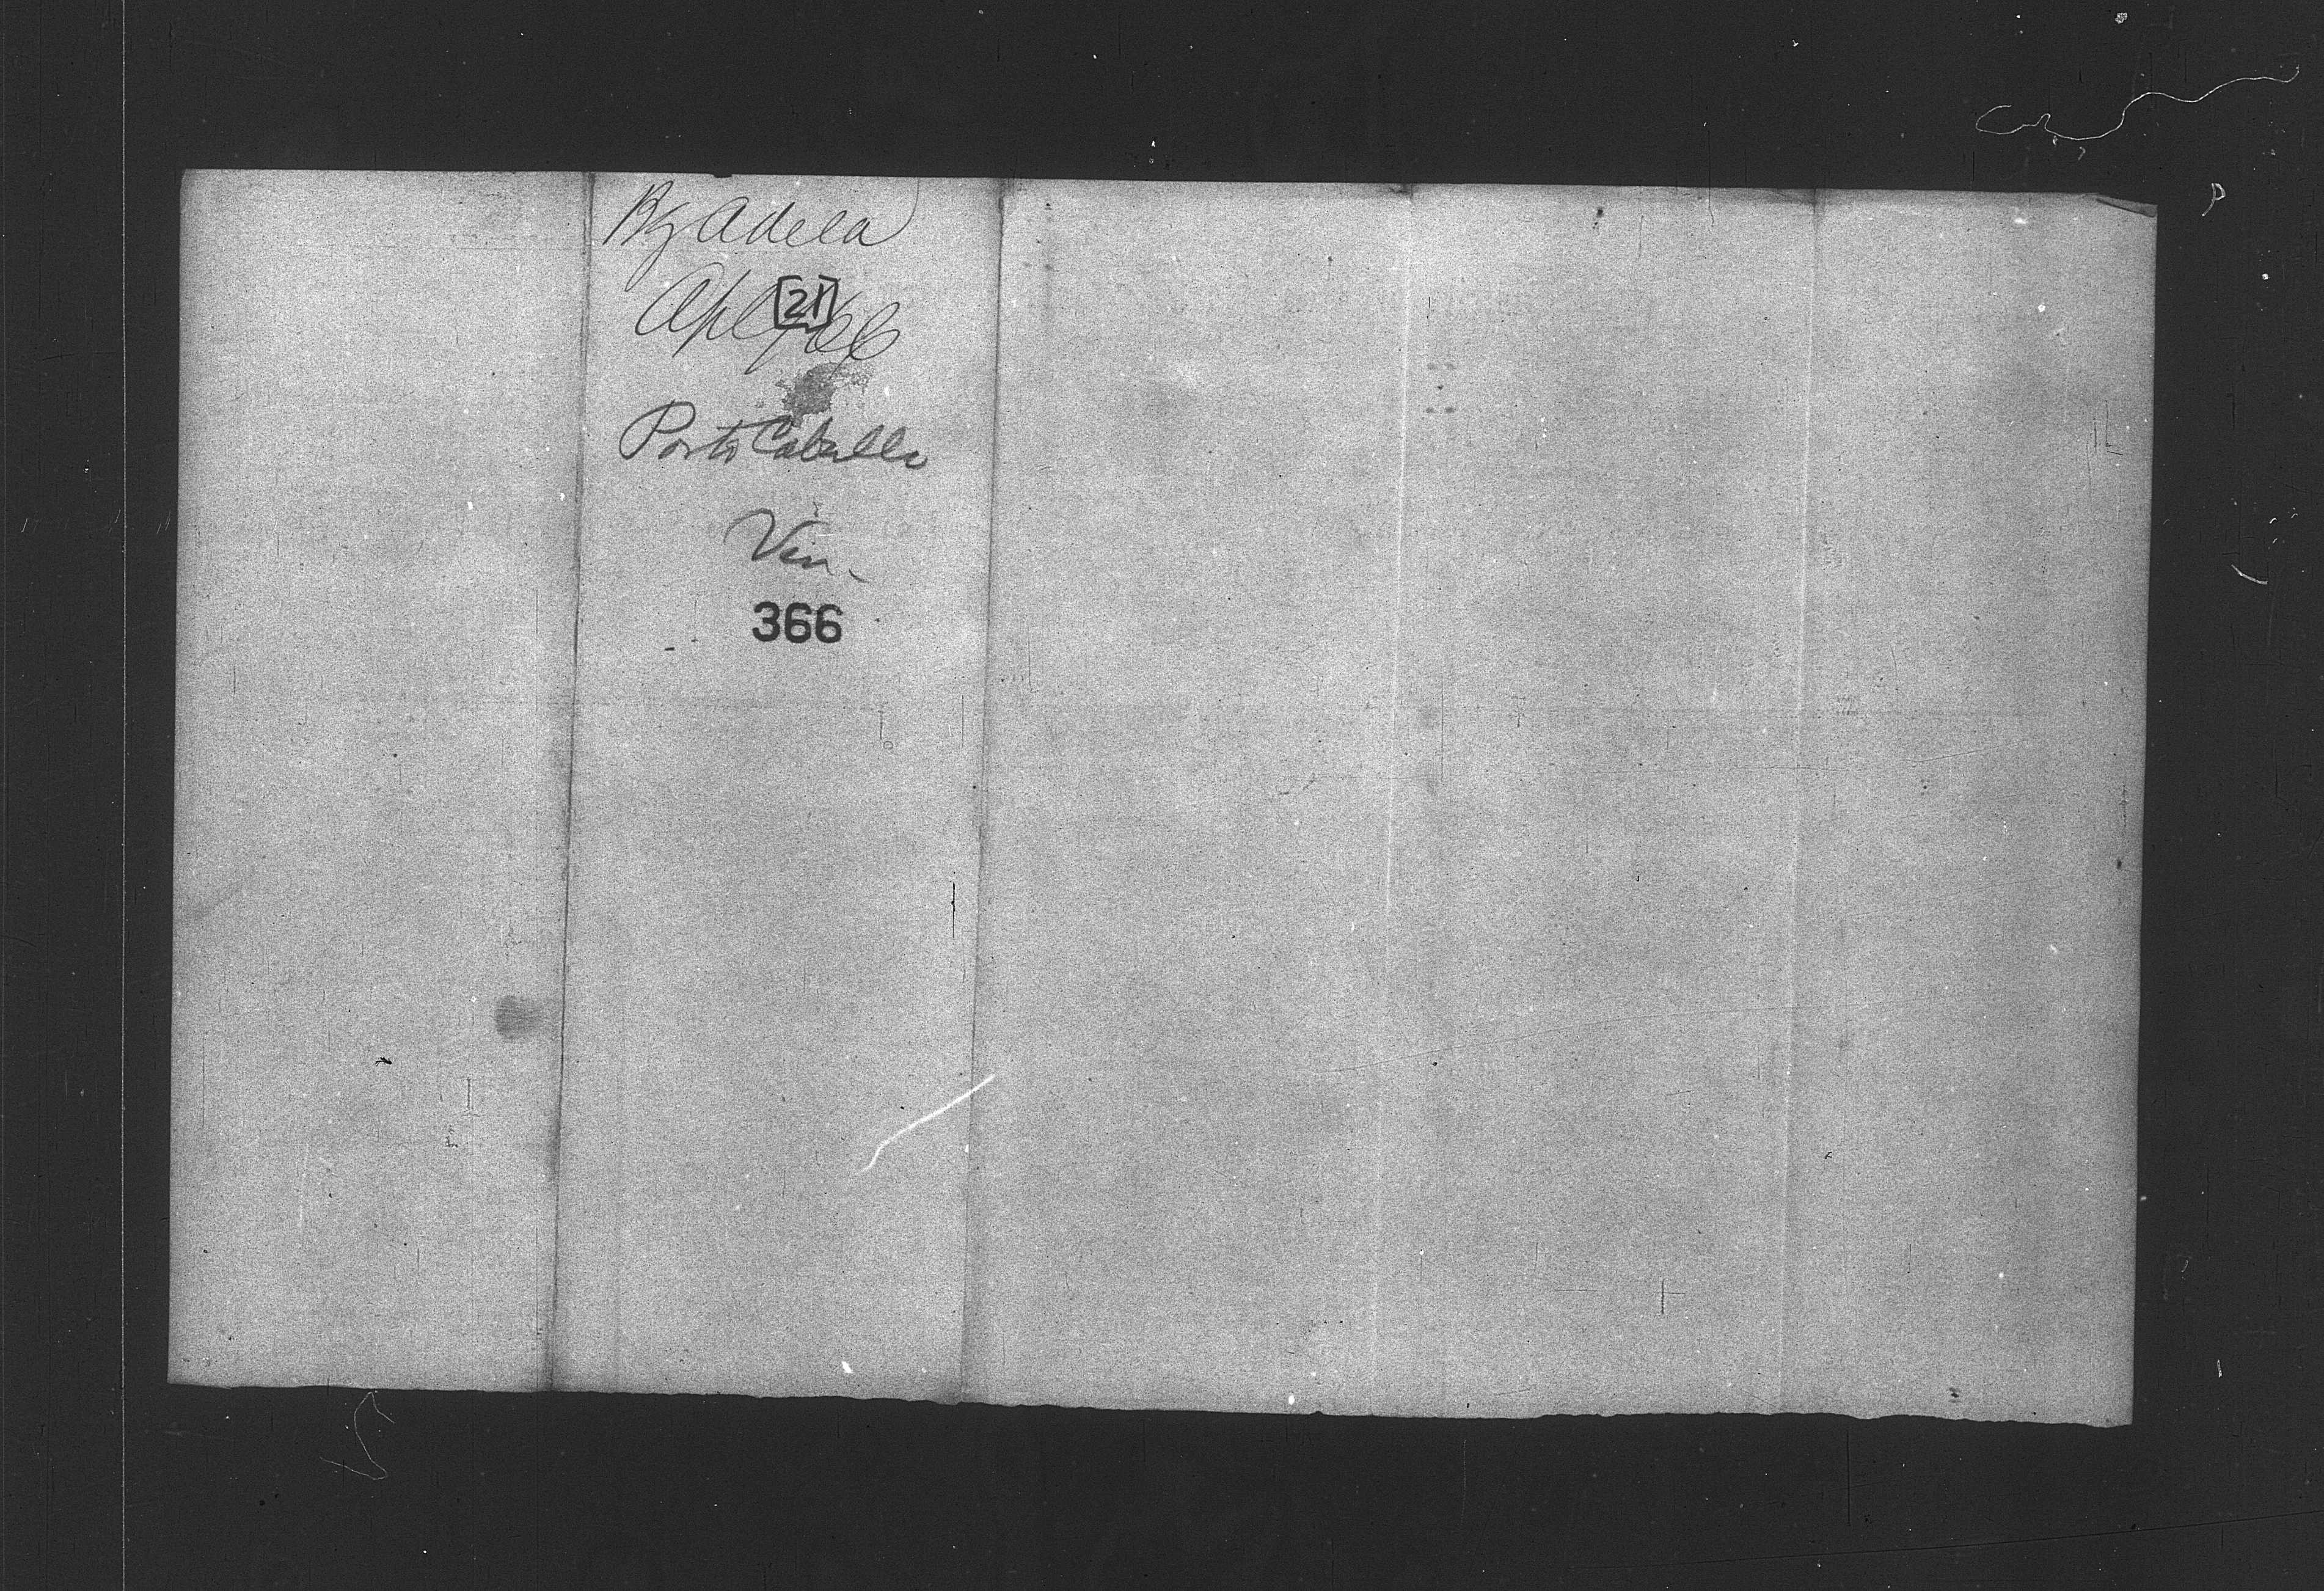 Bg Adela
Apl 9/66
[21]
Porto Cabello
Ven.
366